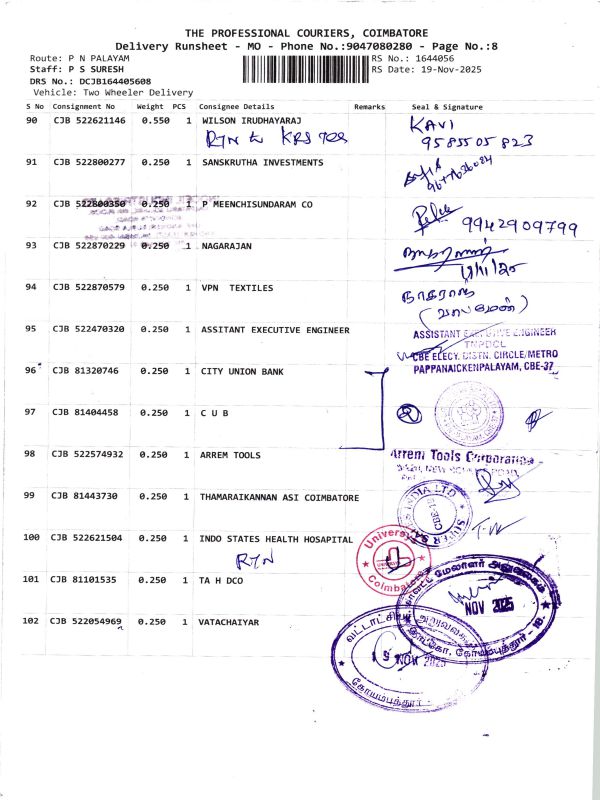 THE PROFESSIONAL COURIERS, COIMBATORE
Delivery Runsheet - MO - Phone No.:9047080280 - Page No.:8
Route: P N PALAYAM
Staff: P S SURESH
DRS No.: DCJB164405608
Vehicle: Two Wheeler Delivery
RS No.: 1644056
RS Date: 19-Nov-2025
S No Consignment No Weight PCS Consignee Details Remarks Seal & Signature
90 CJB 522621146 0.550 1 WILSON IRUDHAYARAJ KAVI
RTN to 9585505823
91 CJB 522800277 0.250 1 SANSKRUTHA INVESTMENTS
92 CJB 522800350 0.250 1 P MEENCHISUNDARAM CO
9942909799
93 CJB 522870229 0.250 1 NAGARAJAN
94 CJB 522870579 0.250 1 VPN TEXTILES நாகராஜ்
95 CJB 522470320 0.250 1 ASSITANT EXECUTIVE ENGINEER
ASSISTANT EXECUTIVE ENGINEER
TNPDCL
CBE ELECY. DISTN. CIRCLE/METRO
PAPPANAICKENPALAYAM, CBE-37
96 CJB 81320746 0.250 1 CITY UNION BANK
97 CJB 81404458 0.250 1 C U B
98 CJB 522574932 0.250 1 ARREM TOOLS
Arrem Tools Corporation
99 CJB 81443730 0.250 1 THAMARAIKANNAN ASI COIMBATORE
INDIA LTD
100 CJB 522621504 0.250 1 INDO STATES HEALTH HOSAPITAL
RTN
University
Coimbatore
101 CJB 81101535 0.250 1 TA H DCO
NOV 2025
102 CJB 522054969 0.250 1 VATACHAIYAR
19 NOV 2025
கோயம்புத்தூர்